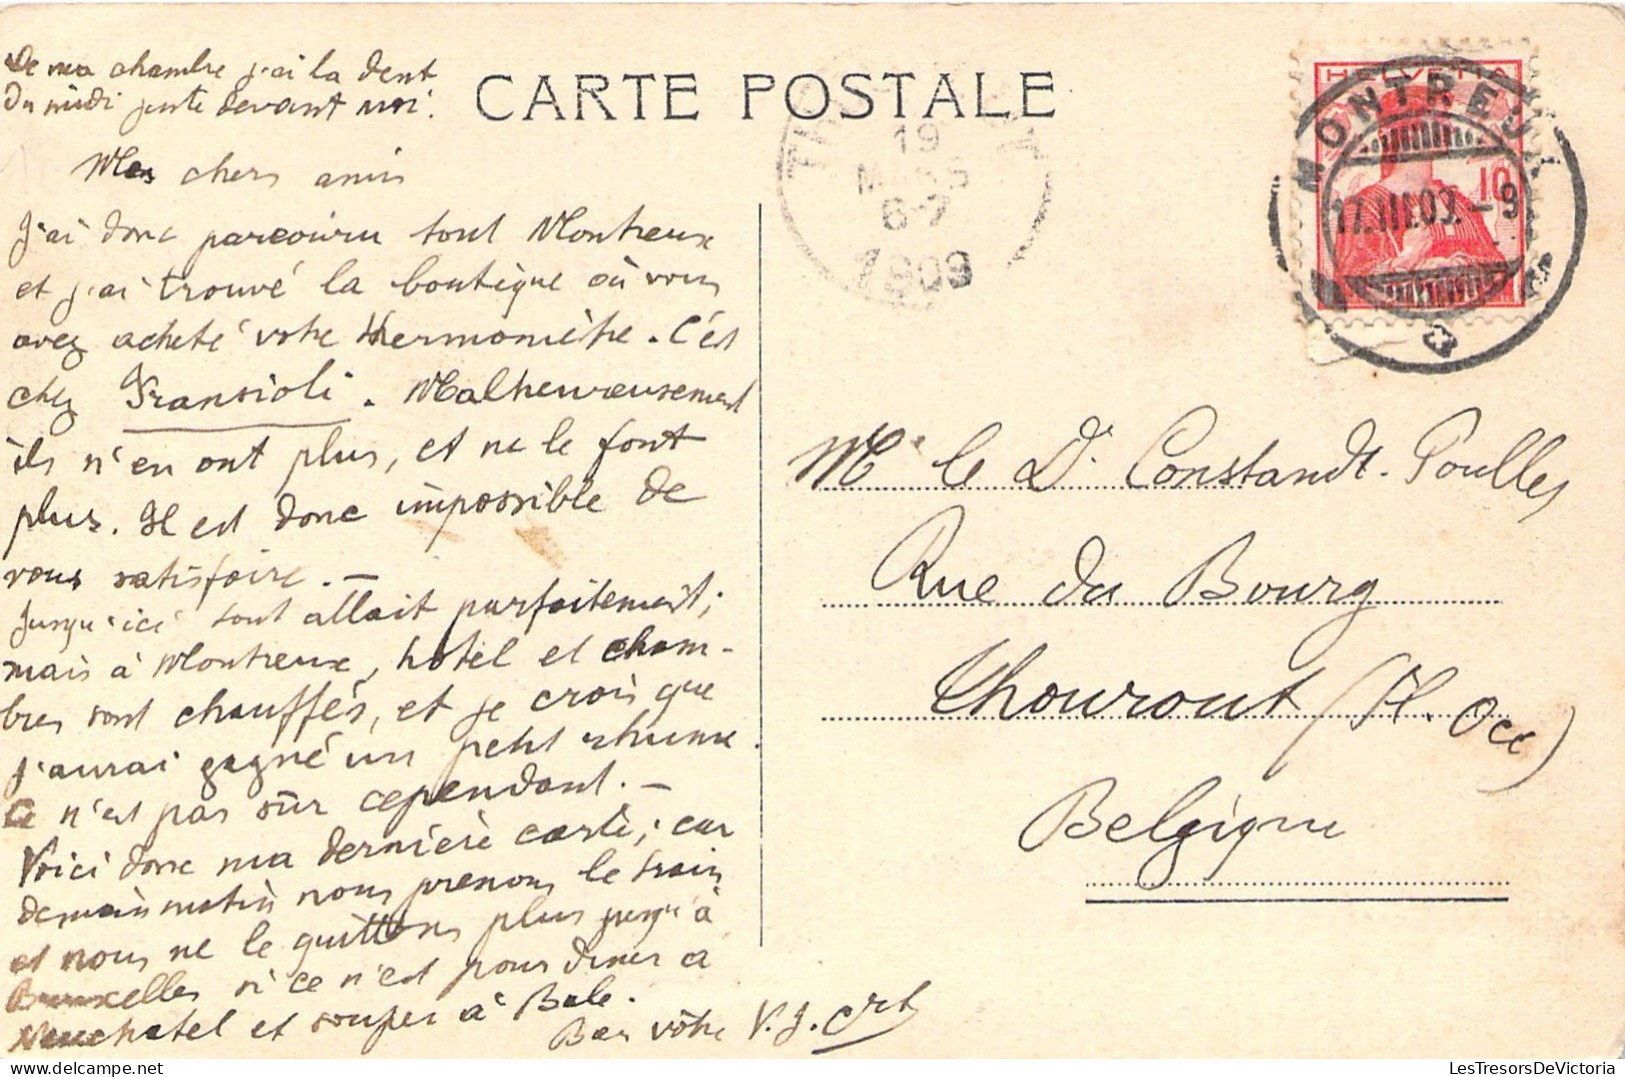 De ma chambre j'ai la dent
du midi juste devant moi.
CARTE POSTALE
Mes chers amis
J'ai donc parcouru tout Montreux
et j'ai trouvé la boutique où vous
avez acheté votre thermomètre. C'est
chez Fransioli. Malheureusement
ils n'en ont plus, et ne le font
plus. Il est donc impossible de
vous satisfaire. —
Jusqu'ici tout allait parfaitement;
mais à Montreux, hotel et cham-
bres sont chauffés, et je crois que
j'aurai gagné un petit rhume.
Ce n'est pas sûr cependant. —
Voici donc ma dernière carte; car
demain matin nous prenons le train
et nous ne le quittons plus jusqu'à
Bruxelles si ce n'est pour diner à
Neuchatel et souper à Bale.
Bien vôtre V. J.
HELVETIA
10
MONTREUX
17.III.09.-9
19
MARS
6-7
1909
Mr le Dr. Constandt-Poulles
Rue du Bourg
Thourout (Fl. Occ)
Belgique
LesTresorsDeVictoria